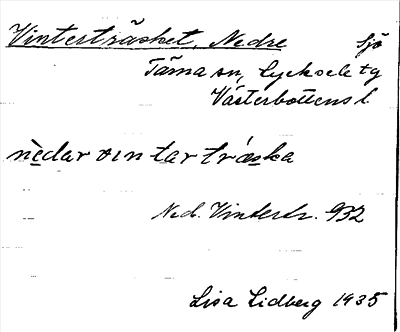 Vinterträsket, Nedre Sjö
Tärna sn, Lycksele tg
Västerbottens l
nèdar vintartráska
Ned. Vintertr. 932
Lisa Lidberg 1935